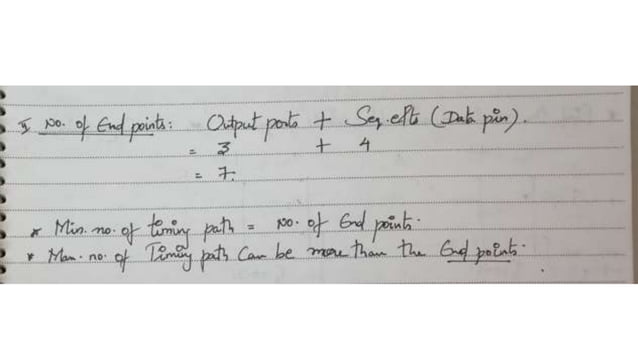 II No. of End points: Output ports + Seq. elts (Data pin).
= 3 + 4
= 7.
* Min. no. of timing path = No. of End points.
* Max. no. of Timing path Can be more than the End points.